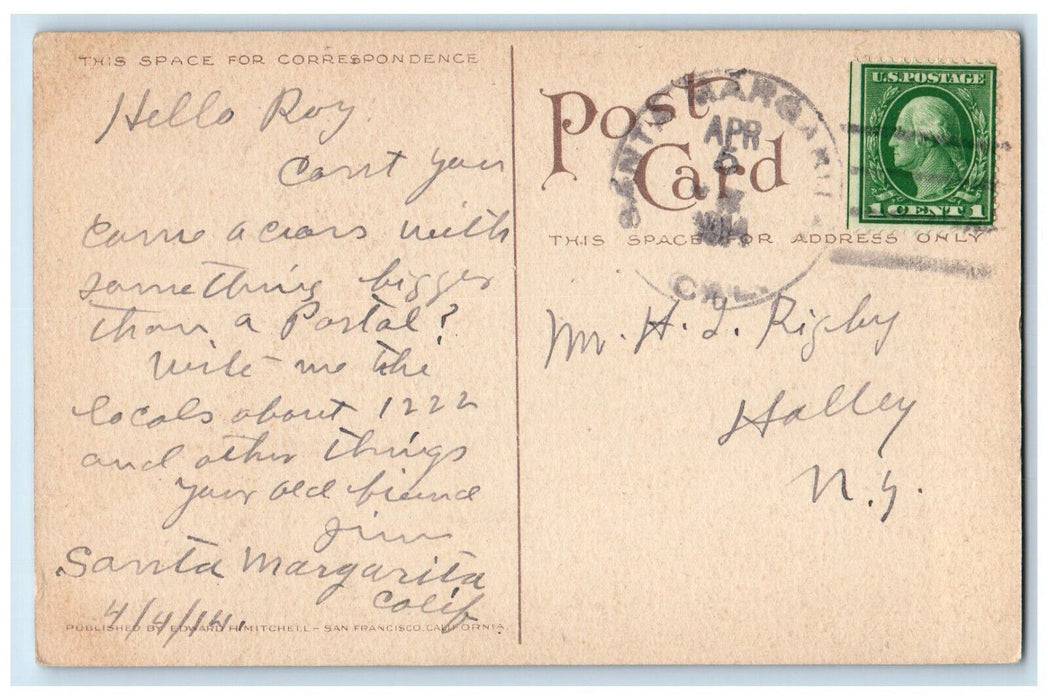 THIS SPACE FOR CORRESPONDENCE
Hello Roy.
Cant you
come across with
something bigger
than a Postal?
Write me the
locals about 1222
and other things
your old friend
Jim
Santa Margarita
Calif
4/4/14.
PUBLISHED BY EDWARD H. MITCHELL – SAN FRANCISCO, CALIFORNIA.
Post
Card
SANTA MARGARITA
APR
6
CAL.
U.S. POSTAGE
1 CENT 1
THIS SPACE FOR ADDRESS ONLY
Mr. H. I. Rigby
Holley
N.Y.